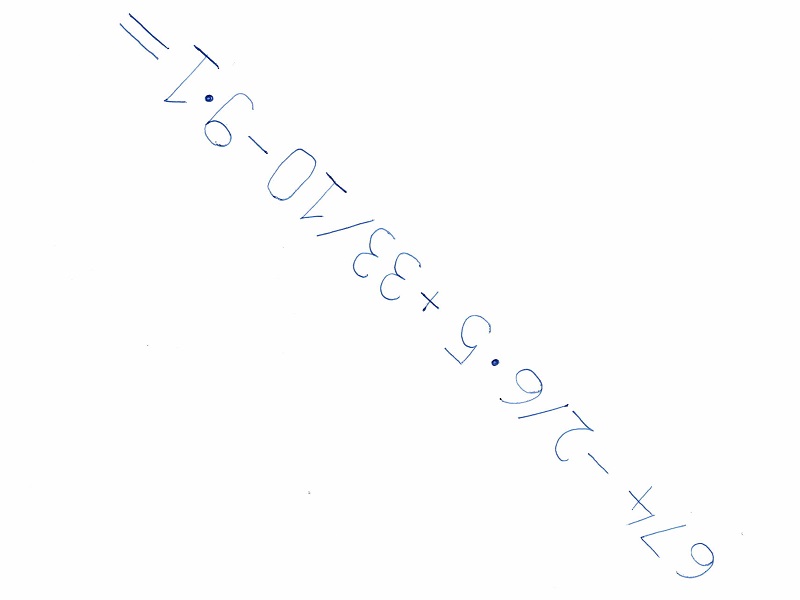 674 - 2/6 • 5 + 33/10 - 9 • 1 =